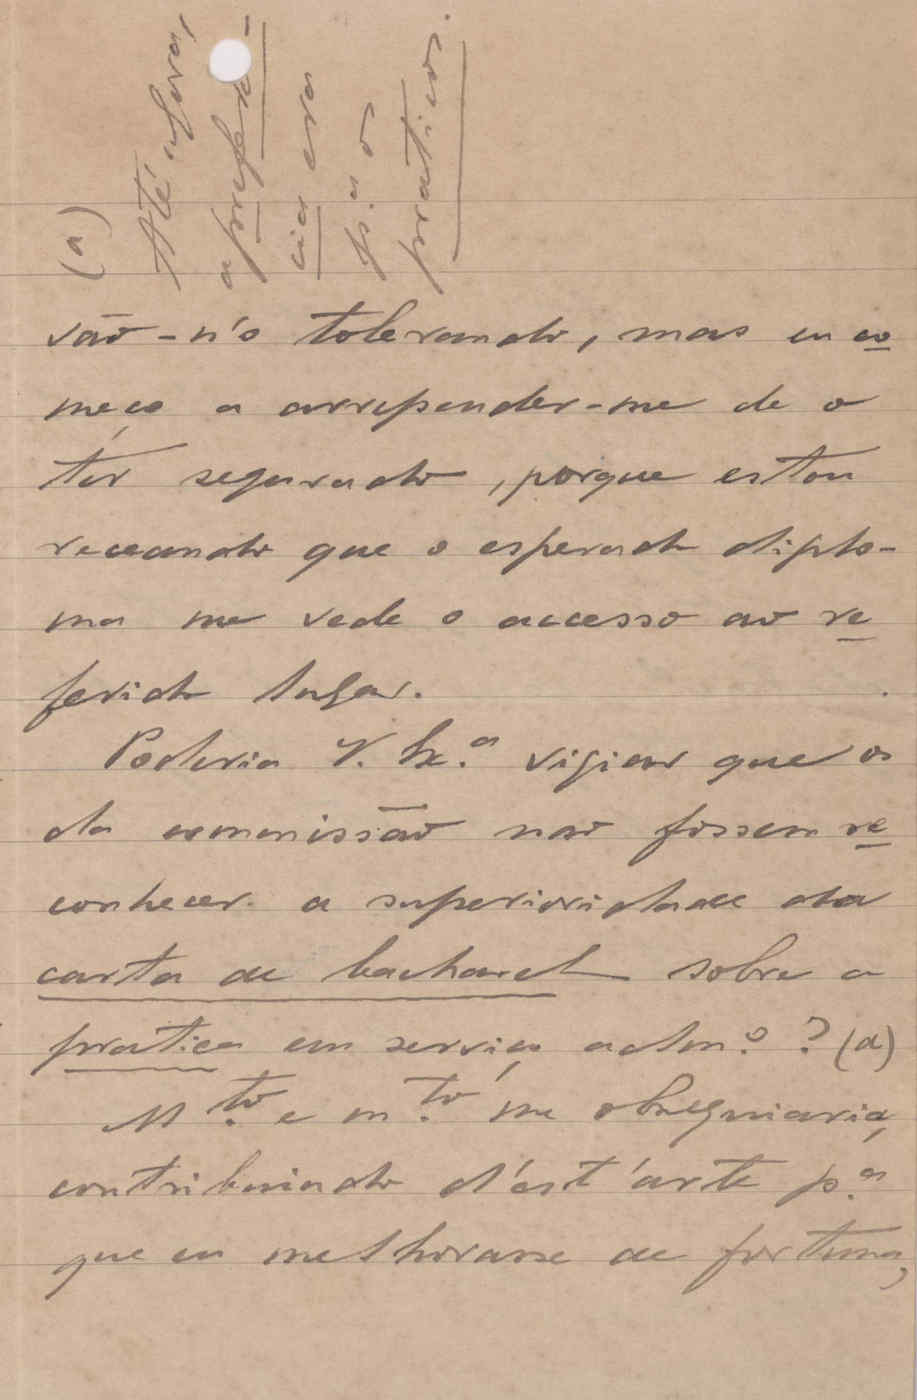 (a)
Até agora,
a preferen-
cia era
p.ª o
praticos.
vão-n'o tolerando, mas eu co
meço a arrepender-me de o
ter segurado, porque estou
receando que o esperado diplo-
ma me vede o accesso ao re
ferido lugar.
Poderia V. Ex.ª vigiar que os
da commissão não fossem re
conhecer a superioridade da
carta de bacharel sobre a
pratica em serviço adm.º ? (a)
M.to e m.to me obsequiaria,
contribuindo d'est'arte p.ª
que eu melhorasse de fortuna,